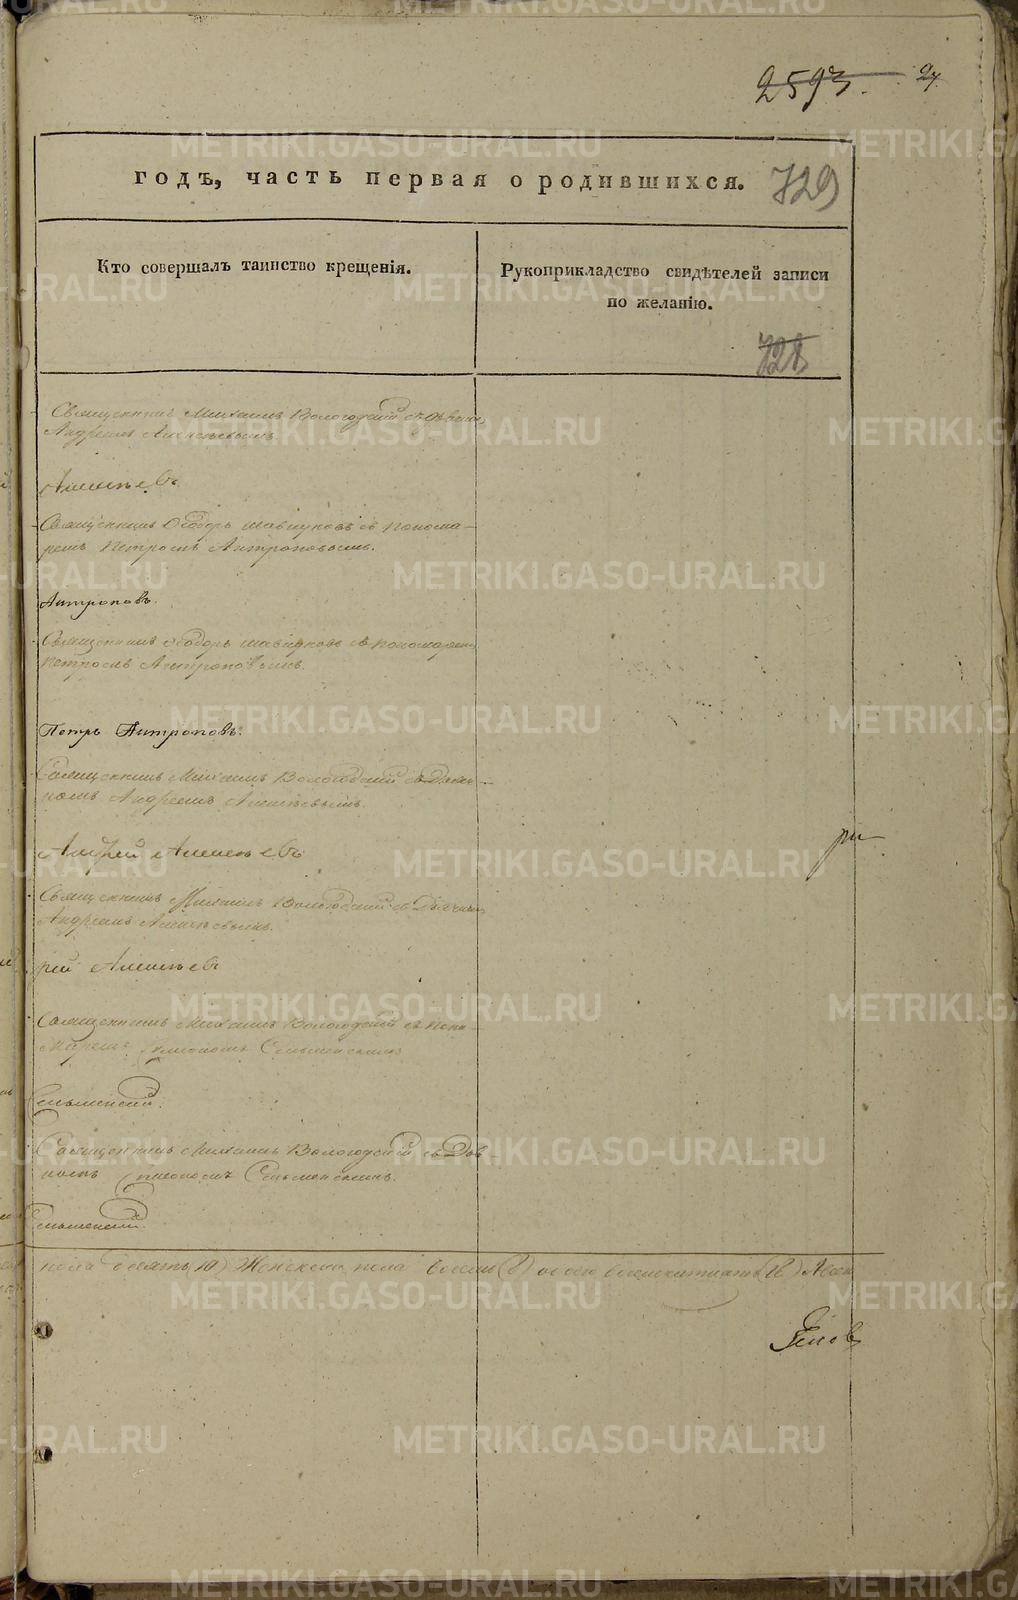 2593. 27
годъ, часть первая о родившихся. 729
Кто совершалъ таинство крещенія.
Рукоприкладство свидѣтелей записи
по желанію.
728
Священникъ Михаилъ Вологодский съ
Андреемъ Алексѣевымъ.
Алексѣевъ
Священникъ Ѳеодоръ Шавкуновъ съ понома-
ремъ Петромъ Антроповымъ.
Антроповъ.
Священникъ Ѳеодоръ Шавкуновъ съ пономаремъ
Петромъ Антроповымъ.
Петръ Антроповъ.
Священникъ Михаилъ Вологодский съ Дьяч-
комъ Андреемъ Алексѣевымъ.
Андрей Алексѣевъ
Священникъ Михаилъ Вологодский съ Дьячкомъ
Андреемъ Алексѣевымъ.
рей Алексѣевъ
Священникъ Михаилъ Вологодский съ поно-
маремъ
Священникъ Михаилъ Вологодский съ
пола десять (10) Женскаго пола восемь (8) обоего восемнадцать (18)
METRIKI.GASO-URAL.RU